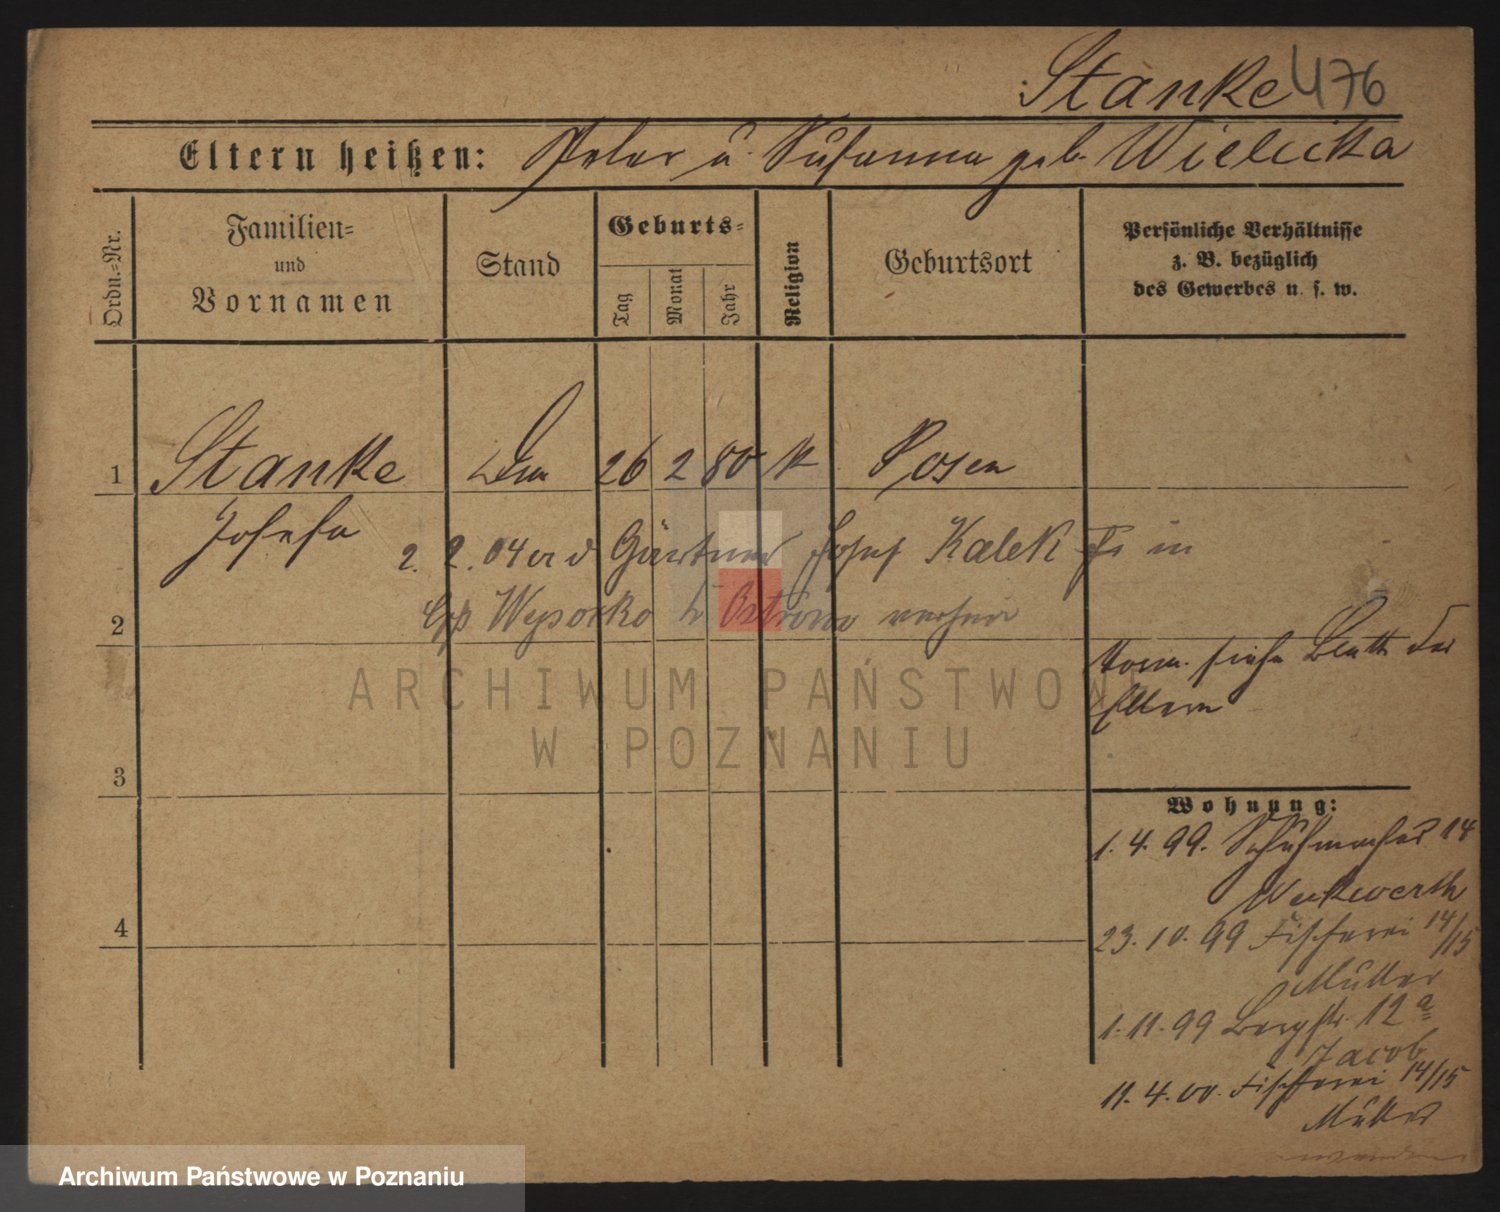 Stanke 476
Eltern heißen: Peter u. Susanna geb. Wielicka
Ordn.=Nr.
Familien=
und
Vornamen
Stand
Geburts=
Tag
Monat
Jahr
Religion
Geburtsort
Persönliche Verhältnisse
z. B. bezüglich
des Gewerbes u. s. w.
1 Stanke 26 2 80 k Posen
Josefa
2. 2. 04 Gärtner Josef Kalek in
2 Wysocko Ostrowo
Vorm. siehe Blatt der
Eltern
ARCHIWUM PAŃSTWOWE
W POZNANIU
3
Wohnung:
1. 4. 99. Schuhmacher 14
Wenkwerth
4
23. 10. 99 Fischerei 14/15
Müller
1. 11. 99 Bergstr. 12 a
Jacob
11. 4. 00. Fischerei 14/15
Müller
Archiwum Państwowe w Poznaniu